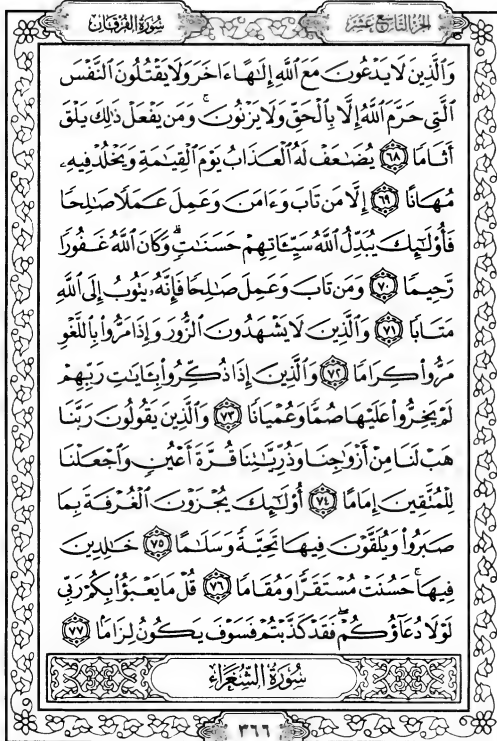 سُورَةُ الفُرْقَان
الجُزْءُ التَّاسِعَ عَشَرَ
وَٱلَّذِينَ لَا يَدْعُونَ مَعَ ٱللَّهِ إِلَٰهًا ءَاخَرَ وَلَا يَقْتُلُونَ ٱلنَّفْسَ
ٱلَّتِي حَرَّمَ ٱللَّهُ إِلَّا بِٱلْحَقِّ وَلَا يَزْنُونَ ۚ وَمَن يَفْعَلْ ذَٰلِكَ يَلْقَ
أَثَامًا ٦٨ يُضَٰعَفْ لَهُ ٱلْعَذَابُ يَوْمَ ٱلْقِيَٰمَةِ وَيَخْلُدْ فِيهِۦ
مُهَانًا ٦٩ إِلَّا مَن تَابَ وَءَامَنَ وَعَمِلَ عَمَلًا صَٰلِحًا
فَأُو۟لَٰٓئِكَ يُبَدِّلُ ٱللَّهُ سَيِّـَٔاتِهِمْ حَسَنَٰتٍ ۗ وَكَانَ ٱللَّهُ غَفُورًا
رَّحِيمًا ٧٠ وَمَن تَابَ وَعَمِلَ صَٰلِحًا فَإِنَّهُۥ يَتُوبُ إِلَى ٱللَّهِ
مَتَابًا ٧١ وَٱلَّذِينَ لَا يَشْهَدُونَ ٱلزُّورَ وَإِذَا مَرُّوا۟ بِٱللَّغْوِ
مَرُّوا۟ كِرَامًا ٧٢ وَٱلَّذِينَ إِذَا ذُكِّرُوا۟ بِـَٔايَٰتِ رَبِّهِمْ
لَمْ يَخِرُّوا۟ عَلَيْهَا صُمًّا وَعُمْيَانًا ٧٣ وَٱلَّذِينَ يَقُولُونَ رَبَّنَا
هَبْ لَنَا مِنْ أَزْوَٰجِنَا وَذُرِّيَّٰتِنَا قُرَّةَ أَعْيُنٍ وَٱجْعَلْنَا
لِلْمُتَّقِينَ إِمَامًا ٧٤ أُو۟لَٰٓئِكَ يُجْزَوْنَ ٱلْغُرْفَةَ بِمَا
صَبَرُوا۟ وَيُلَقَّوْنَ فِيهَا تَحِيَّةً وَسَلَٰمًا ٧٥ خَٰلِدِينَ
فِيهَا ۚ حَسُنَتْ مُسْتَقَرًّا وَمُقَامًا ٧٦ قُلْ مَا يَعْبَؤُا۟ بِكُمْ رَبِّي
لَوْلَا دُعَآؤُكُمْ ۖ فَقَدْ كَذَّبْتُمْ فَسَوْفَ يَكُونُ لِزَامًۢا ٧٧
سُورَةُ الشُّعَرَاءِ
٣٦٦